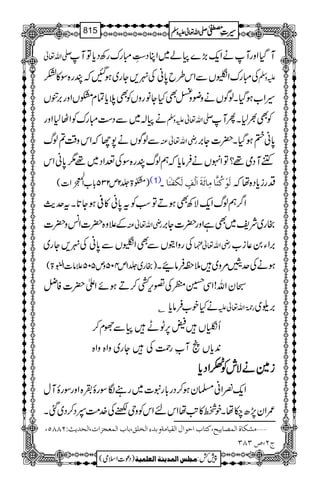 815 سیرتِ مصطفی صلی اللہ تعالیٰ علیہ وسلم
آ گیا اور آپ نے ایک بڑے پیالے میں اپنا دستِ مبارک رکھ دیا تو آپ صلی اللہ تعالیٰ
علیہ وسلم کی مبارک انگلیوں سے اس طرح پانی کی نہریں جاری ہو گئیں کہ پندرہ سو کا لشکر
سیراب ہو گیا۔ لوگوں نے وضو و غسل بھی کیا جانوروں کو بھی پلایا تمام مشکوں اور برتنوں
کو بھی بھر لیا۔ پھر آپ صلی اللہ تعالیٰ علیہ وسلم نے پیالہ میں سے دست مبارک کو اٹھا لیا اور
پانی ختم ہو گیا۔ حضرت جابر رضی اللہ تعالیٰ عنہ سے لوگوں نے پوچھا کہ اس وقت تم لوگ
کتنے آدمی تھے؟ تو انہوں نے فرمایا کہ ہم لوگ پندرہ سو کی تعداد میں تھے مگر پانی اس
قدر زیادہ تھا کہ لَوْ كُنَّا مِائَةَ اَلْفٍ لَكَفَانَا۔ (1) (مشکوٰۃ جلد ۲ ص ۵۳۲ باب المعجزات)
اگر ہم لوگ ایک لاکھ بھی ہوتے تو سب کو یہ پانی کافی ہو جاتا۔ یہ حدیث
بخاری شریف میں بھی ہے اور حضرت جابر رضی اللہ تعالیٰ عنہ کے علاوہ حضرت انس و حضرت
براء بن عازب رضی اللہ تعالیٰ عنہما کی روایتوں سے بھی انگلیوں سے پانی کی نہریں جاری
ہونے کی حدیثیں مروی ہیں ملاحظہ فرمائیے۔ (بخاری جلد ۱ ص ۵۰۴، ص ۵۰۵ علامات النبوۃ)
سبحان اللہ! اسی حسین منظر کی تصویر کشی کرتے ہوئے اعلیٰ حضرت فاضل
بریلوی رحمۃ اللہ تعالیٰ علیہ نے کیا خوب فرمایا
اُنگلیاں ہیں فیض پر ٹوٹے ہیں پیاسے جھوم کر
ندیاں پنج آبِ رحمت کی ہیں جاری واہ واہ
زمین نے لاش کو ٹھکرا دیا
ایک نصرانی مسلمان ہو کر دربارِ نبوت میں رہنے لگا سورۂ بقرہ اور سورۂ آلِ
عمران پڑھ چکا تھا۔ خوشخط کاتب تھا اس لئے اس کو وحی لکھنے کی خدمت سپرد کر دی گئی۔
مشکاۃ المصابیح، کتاب احوال القیامۃ وبدء الخلق، باب المعجزات، الحدیث: ۵۸۸۲،
ج۲، ص ۳۸۳
پیش کش: مجلس المدینۃ العلمیۃ (دعوت اسلامی)